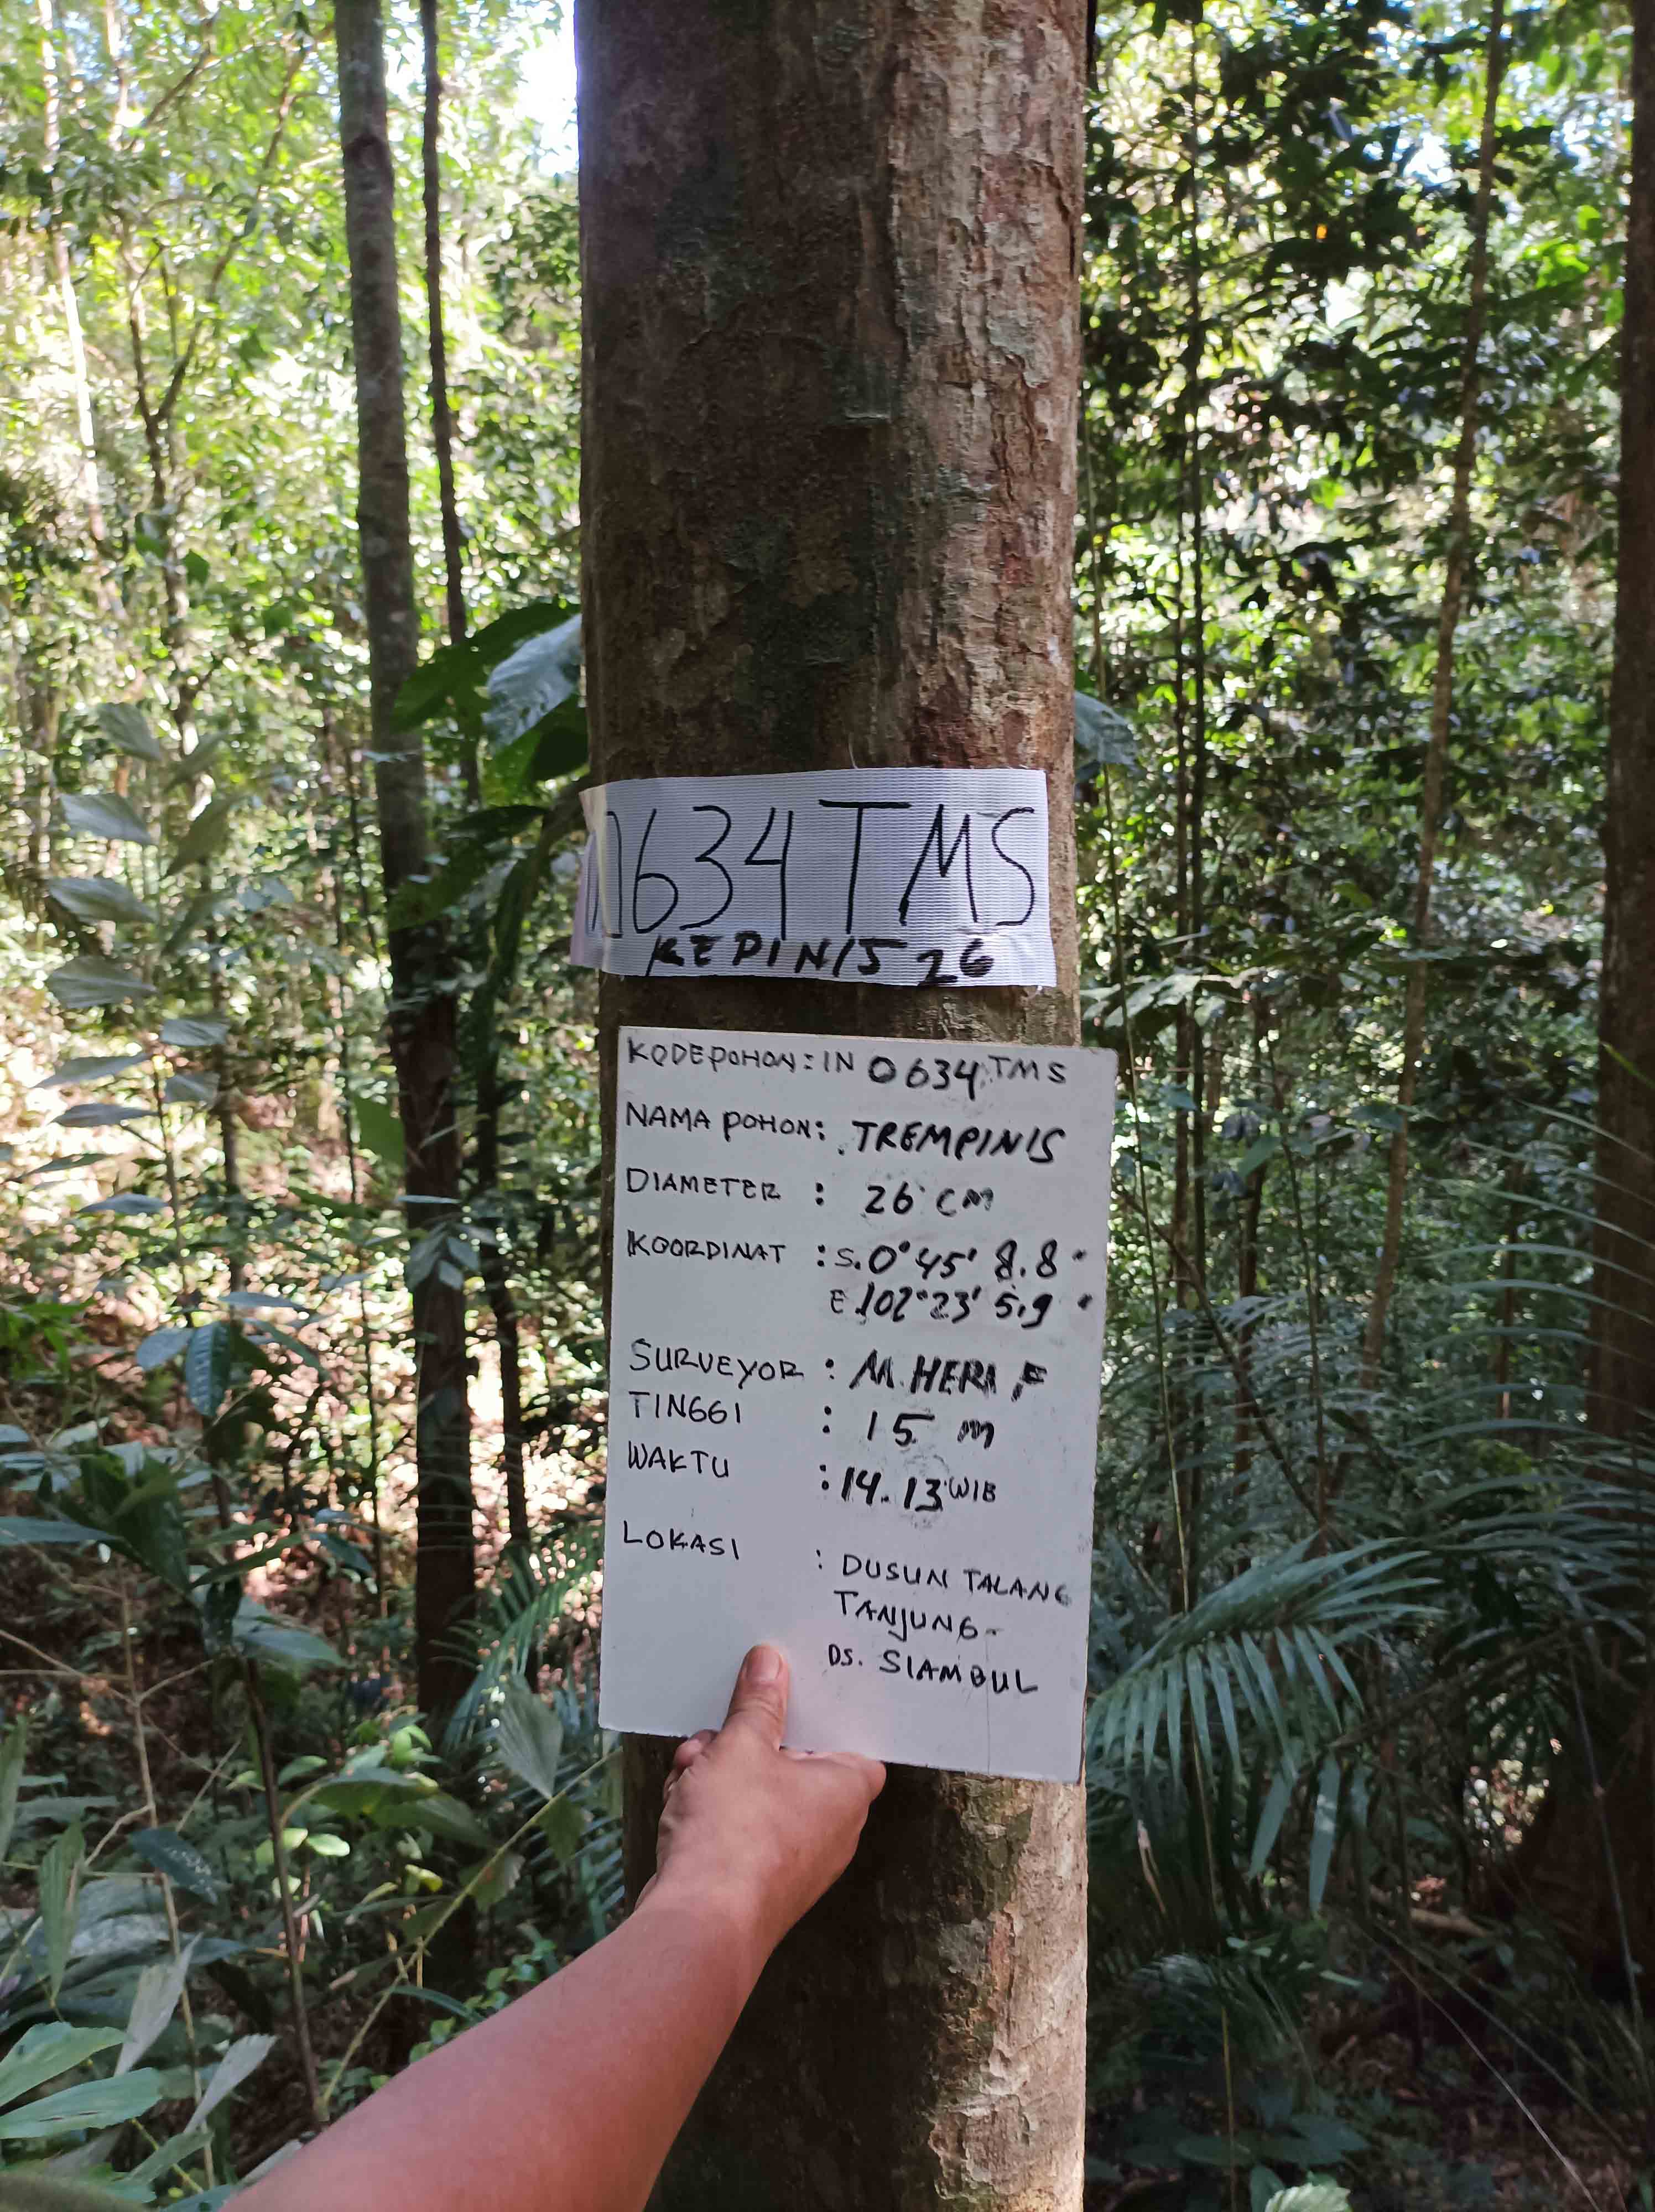 0634 TMS
KEPINIS 26
KODE POHON : IN 0634 TMS
NAMA POHON : TREMPINIS
DIAMETER : 26 CM
KOORDINAT : S. 0° 45' 8.8"
E 102° 23' 5.9"
SURVEYOR : M. HERI F
TINGGI : 15 m
WAKTU : 14.13 WIB
LOKASI : DUSUN TALANG
TANJUNG-
DS. SIAMBUL